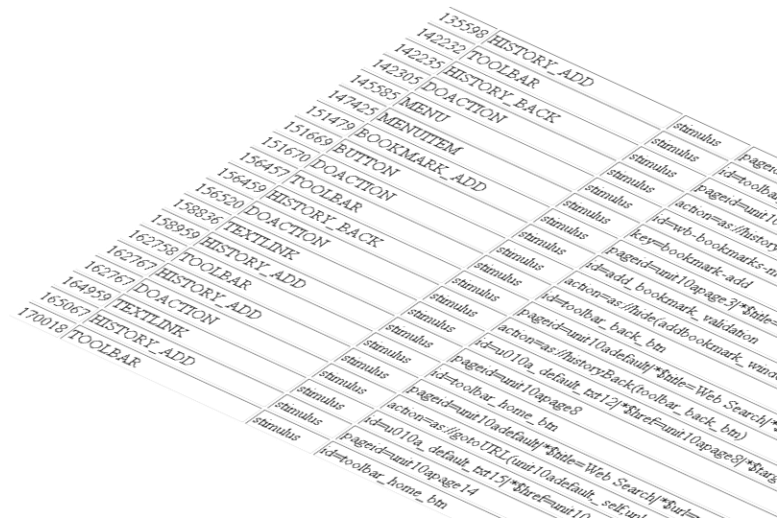 135598 HISTORY_ADD stimulus pageid
142232 TOOLBAR stimulus id=toolba
142235 HISTORY_BACK stimulus pageid=unit10
142305 DOACTION stimulus action=as://history
145585 MENU stimulus id=wb-bookmarks-m
147425 MENUITEM stimulus key=bookmark-add
151479 BOOKMARK_ADD stimulus pageid=unit10apage3|*$title=
151669 BUTTON stimulus id=add_bookmark_validation
151670 DOACTION stimulus action=as://hide(addbookmark_windo
156457 TOOLBAR stimulus id=toolbar_back_btn
156459 HISTORY_BACK stimulus pageid=unit10adefault|*$title=Web Search|*$
156520 DOACTION stimulus action=as://historyBack(toolbar_back_btn)
158836 TEXTLINK stimulus id=u010a_default_txt12|*$href=unit10apage8|*$targ
158959 HISTORY_ADD stimulus pageid=unit10apage8
162758 TOOLBAR stimulus id=toolbar_home_btn
162767 HISTORY_ADD stimulus pageid=unit10adefault|*$title=Web Search|*$url=
162767 DOACTION stimulus action=as://gotoURL(unit10adefault,_self,
164959 TEXTLINK stimulus id=u010a_default_txt15|*$href=unit10
165067 HISTORY_ADD stimulus pageid=unit10apage14
170018 TOOLBAR stimulus id=toolbar_home_btn